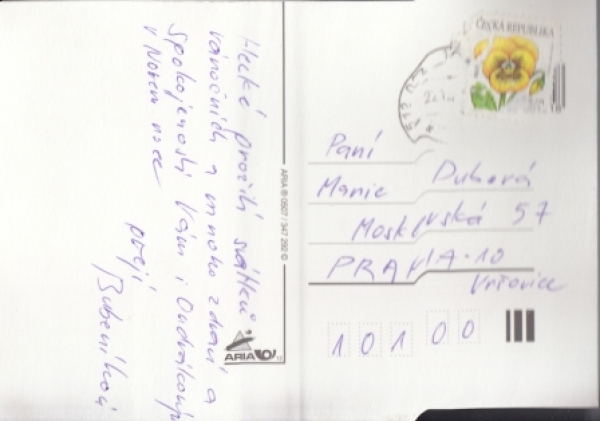 Hezké prožití svátků
vánočních a mnoho zdraví a
spokojenosti Vám i Ondráškovým
v Novém roce
přejí
Bubeníkovi
ARIA ® 0507 / 347 292 ©
ARIA
ČESKÁ REPUBLIKA
Paní
Marie Dubová
Moskevská 57
PRAHA-10
Vršovice
101 00